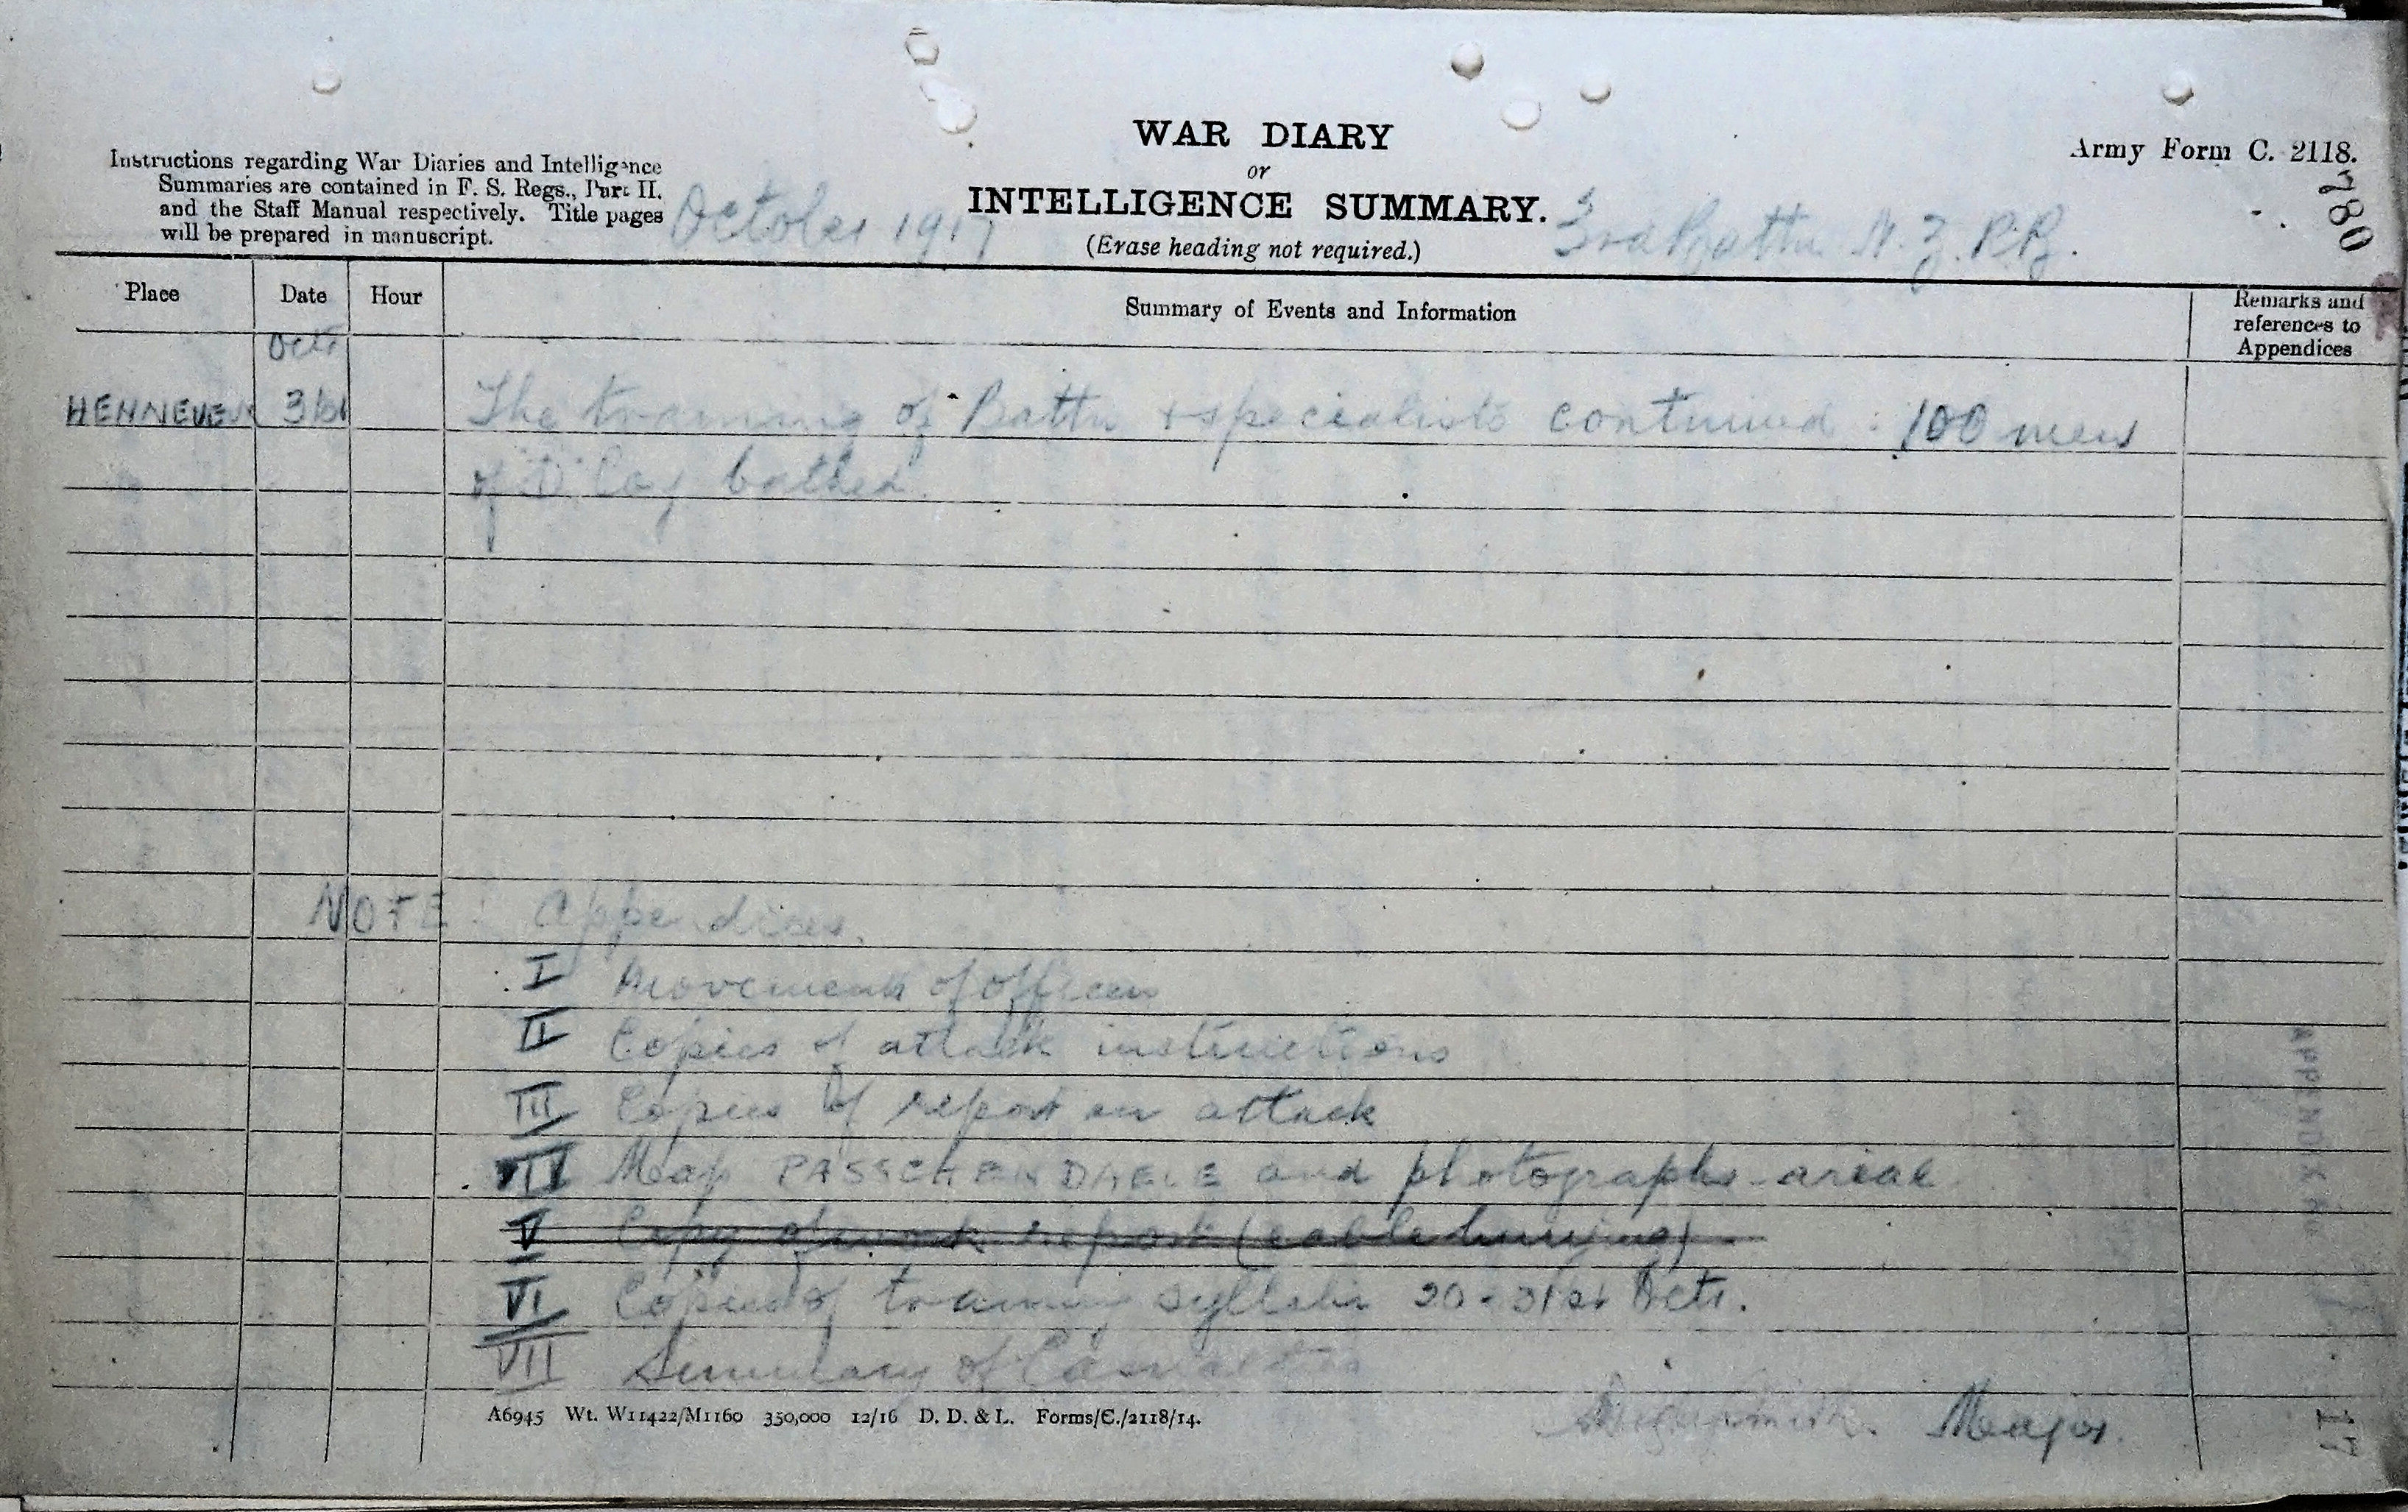 WAR DIARY
or
INTELLIGENCE SUMMARY.
(Erase heading not required.)
Army Form C. 2118.
780
Instructions regarding War Diaries and Intelligence
Summaries are contained in F. S. Regs., Part II.
and the Staff Manual respectively. Title pages
will be prepared in manuscript.
October 1917
3rd Battn N.Z.R.B.
Place Date Hour Summary of Events and Information Remarks and references to Appendices
Octr
31st The training of Battn & specialists continued : 100 men
of "D" Coy bathed.
NOTE: Appendices.
I Movements of Officers
II Copies of attack instructions
III Copies of report on attack
IV Map PASSCHENDAELE and photographs arial
V Copy of work report (cable burying)
VI Copies of training syllabi 20-31st Octr.
VII Summary of Casualties
Major.
A6945 Wt. W11422/M1160 350,000 12/16 D. D. & L. Forms/C./2118/14.